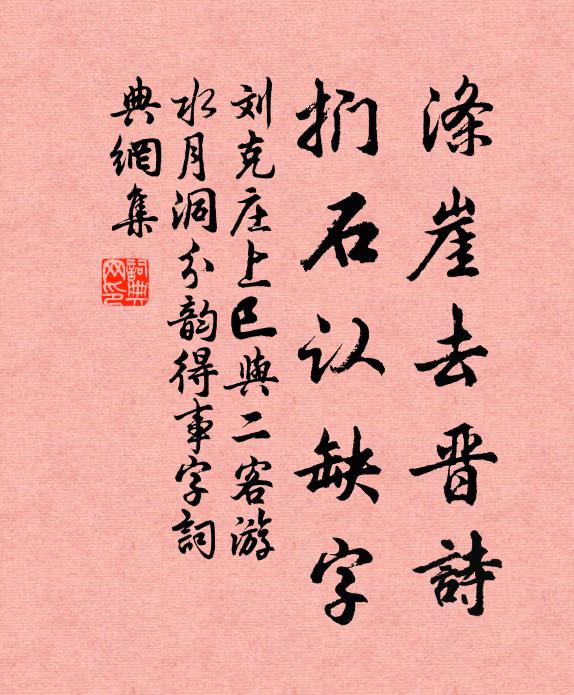 涤崖去晋詩
扪石认缺字
刘克庄上巳與二客游
水月洞分韵得事字詞
典網集
詞典
网印